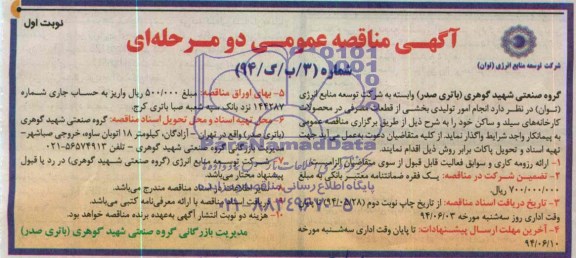 نوبت اول
آگهی مناقصه عمومی دو مرحله‌ای
شماره (۳/ب/گ/۹۴)
شرکت توسعه منابع انرژی (توان)
گروه صنعتی شهید گوهری (باتری صدر) وابسته به شرکت توسعه منابع انرژی
(توان) در نظر دارد انجام امور تولیدی بخشی از قطعات مصرفی در محصولات
کارخانه‌های سیلد و ساکن خود را به شرح ذیل از طریق برگزاری مناقصه عمومی
به پیمانکار واجد شرایط واگذار نماید. از کلیه متقاضیان دعوت به‌عمل می‌آید جهت
تهیه اسناد و تحویل پاکات برابر روش ذیل اقدام نمایند.
۱- ارائه رزومه کاری و سوابق فعالیت قابل قبول از سوی متقاضیان الزامیست.
۲- تضمین شرکت در مناقصه: یک فقره ضمانتنامه معتبر بانکی به مبلغ
۷۰۰/۰۰۰/۰۰۰ ریال.
۳- تاریخ دریافت اسناد مناقصه: از تاریخ چاپ نوبت دوم (۹۴/۰۵/۲۸) تا پایان
وقت اداری روز سه‌شنبه مورخه ۹۴/۰۶/۰۳
۴- آخرین مهلت ارسال پیشنهادات: تا پایان وقت اداری سه‌شنبه مورخه
۹۴/۰۶/۱۰
۵- بهای اوراق مناقصه: مبلغ ۵۰۰/۰۰۰ ریال واریز به حساب جاری شماره
۱۴۴۲۸۷ نزد بانک سپه شعبه صبا باتری کرج.
۶- محل تهیه اسناد و محل تحویل اسناد مناقصه: گروه صنعتی شهید گوهری
(باتری صدر) واقع در تهران - آزادگان، کیلومتر ۱۸ اتوبان ساوه، خروجی صباشهر-
مدیریت بازرگانی گروه صنعتی شهید گوهری - تلفن ۵۶۵۷۴۹۱۳-۰۲۱
۷- شرکت توسعه منابع انرژی (گروه صنعتی شهید گوهری) در رد یا قبول
پیشنهاد مختار می‌باشد.
۸- سایر اطلاعات در اسناد مناقصه مندرج می‌باشد.
۹- دریافت اسناد مناقصه با ارائه معرفی‌نامه کتبی می‌باشد.
۱۰- هزینه دو نوبت انتشار آگهی به‌عهده برنده مناقصه خواهد بود.
مدیریت بازرگانی گروه صنعتی شهید گوهری (باتری صدر)
ParsNamadData
پایگاه اطلاع رسانی مناقصه و مزایده
۰۲۱-۸۸۳۴۹۶۷۰-۵